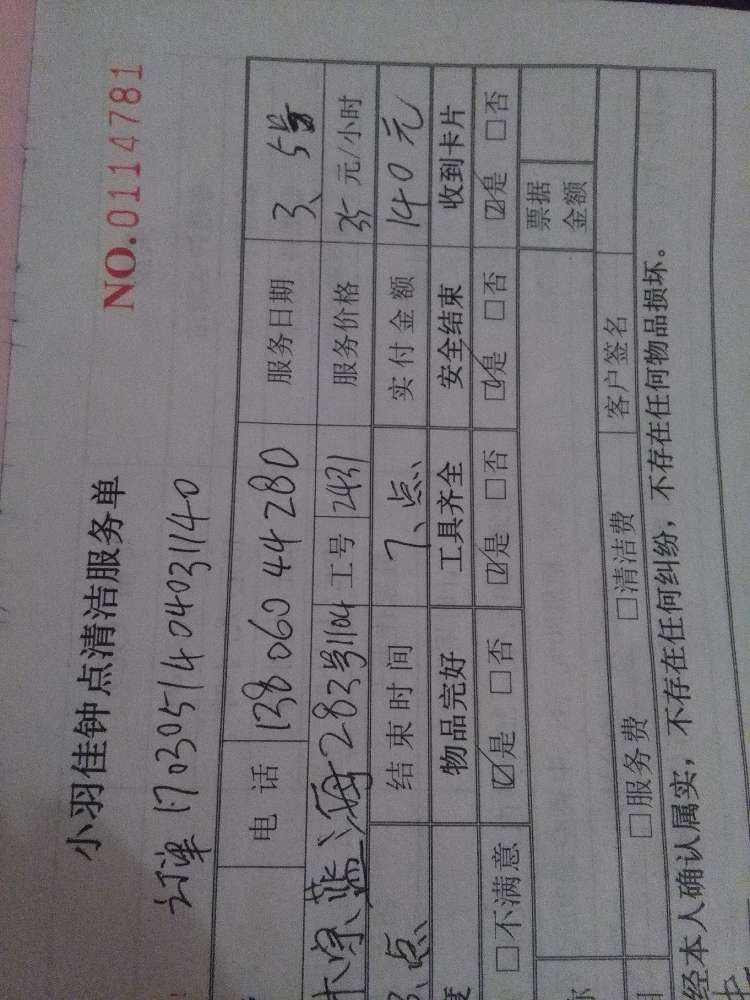 小羽佳钟点清洁服务单
NO.0114781
订单 1703051404031140
电话 13806044280 服务日期 3、5号
蓝海283号1104 工号 2431 服务价格 35元/小时
点 结束时间 7、点 实付金额 140元
物品完好 工具齐全 安全结束 收到卡片
□不满意 ☑是 □否 ☑是 □否 ☑是 □否 ☑是 □否
票据金额
□服务费 □清洁费 客户签名
经本人确认属实，不存在任何纠纷，不存在任何物品损坏。